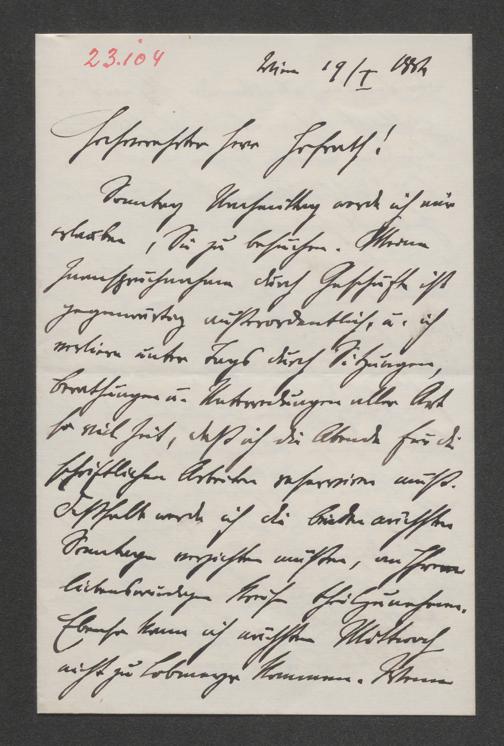 23.104
Wien 19/I 1884
Hochverehrter Herr Hofrath!
Sonntag Nachmittag werde ich mir
erlauben, Sie zu besuchen. Meine
Inanspruchnahme durch Geschäfte ist
gegenwärtig außerordentlich, u. ich
verliere unter Tags durch Sitzungen,
Berathungen u. Unterredungen aller Art
so viel Zeit, daß ich die Abende für die
schriftlichen Arbeiten reserviren muß.
Deßhalb werde ich die beiden nächsten
Sonntage verzichten müssen, an Ihrem
liebenswürdigen Kreise theilzunehmen.
Ebenso kann ich nächsten Mittwoch
nicht zu Lobmeyr kommen. Wenn